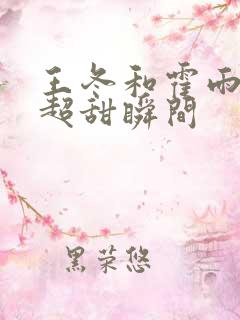 王冬和霍雨
超甜瞬間
黑荣悠